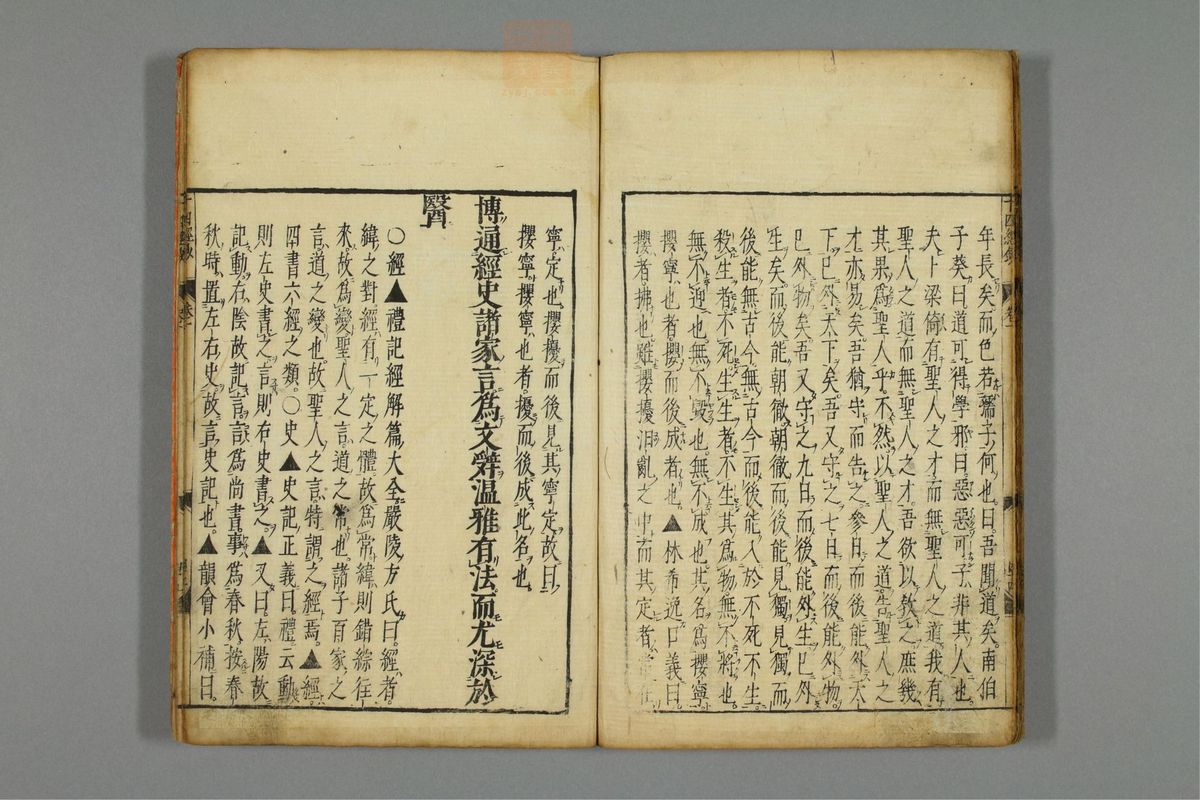 年長矣而色若孺子何也曰吾聞道矣南伯
子葵曰道可得學邪曰惡惡可子非其人也
夫卜梁倚有聖人之才而無聖人之道我有
聖人之道而無聖人之才吾欲以教之庶幾
其果爲聖人乎不然以聖人之道告聖人之
才亦易矣吾猶守而告之參日而後能外天
下已外天下矣吾又守之七日而後能外物
已外物矣吾又守之九日而後能外生已外
生矣而後能朝徹朝徹而後能見獨見獨而
後能無古今無古今而後能入於不死不生
殺生者不死生生者不生其爲物無不將也
無不迎也無不毀也無不成也其名爲攖寧
攖寧也者攖而後成者也▲林希逸口義曰
攖者拂也雖攖擾汨亂之中而其定者常在
寧定也攖擾而後見其寧定故曰
攖寧攖寧也者擾而後成此名也
博通經史諸家言爲文辭温雅有法而尤深於
醫
○經▲禮記經解篇大全嚴陵方氏曰經者
緯之對經有一定之體故爲常緯則錯綜往
來故爲變聖人之言道之常也諸子百家之
言道之變也故聖人之言特謂之經焉▲經
四書六經之類○史▲史記正義曰禮云動
則左史書之言則右史書之▲又曰左陽故
記動右陰故記言言爲尚書事爲春秋按春
秋時置左右史故言史記也▲韻會小補曰